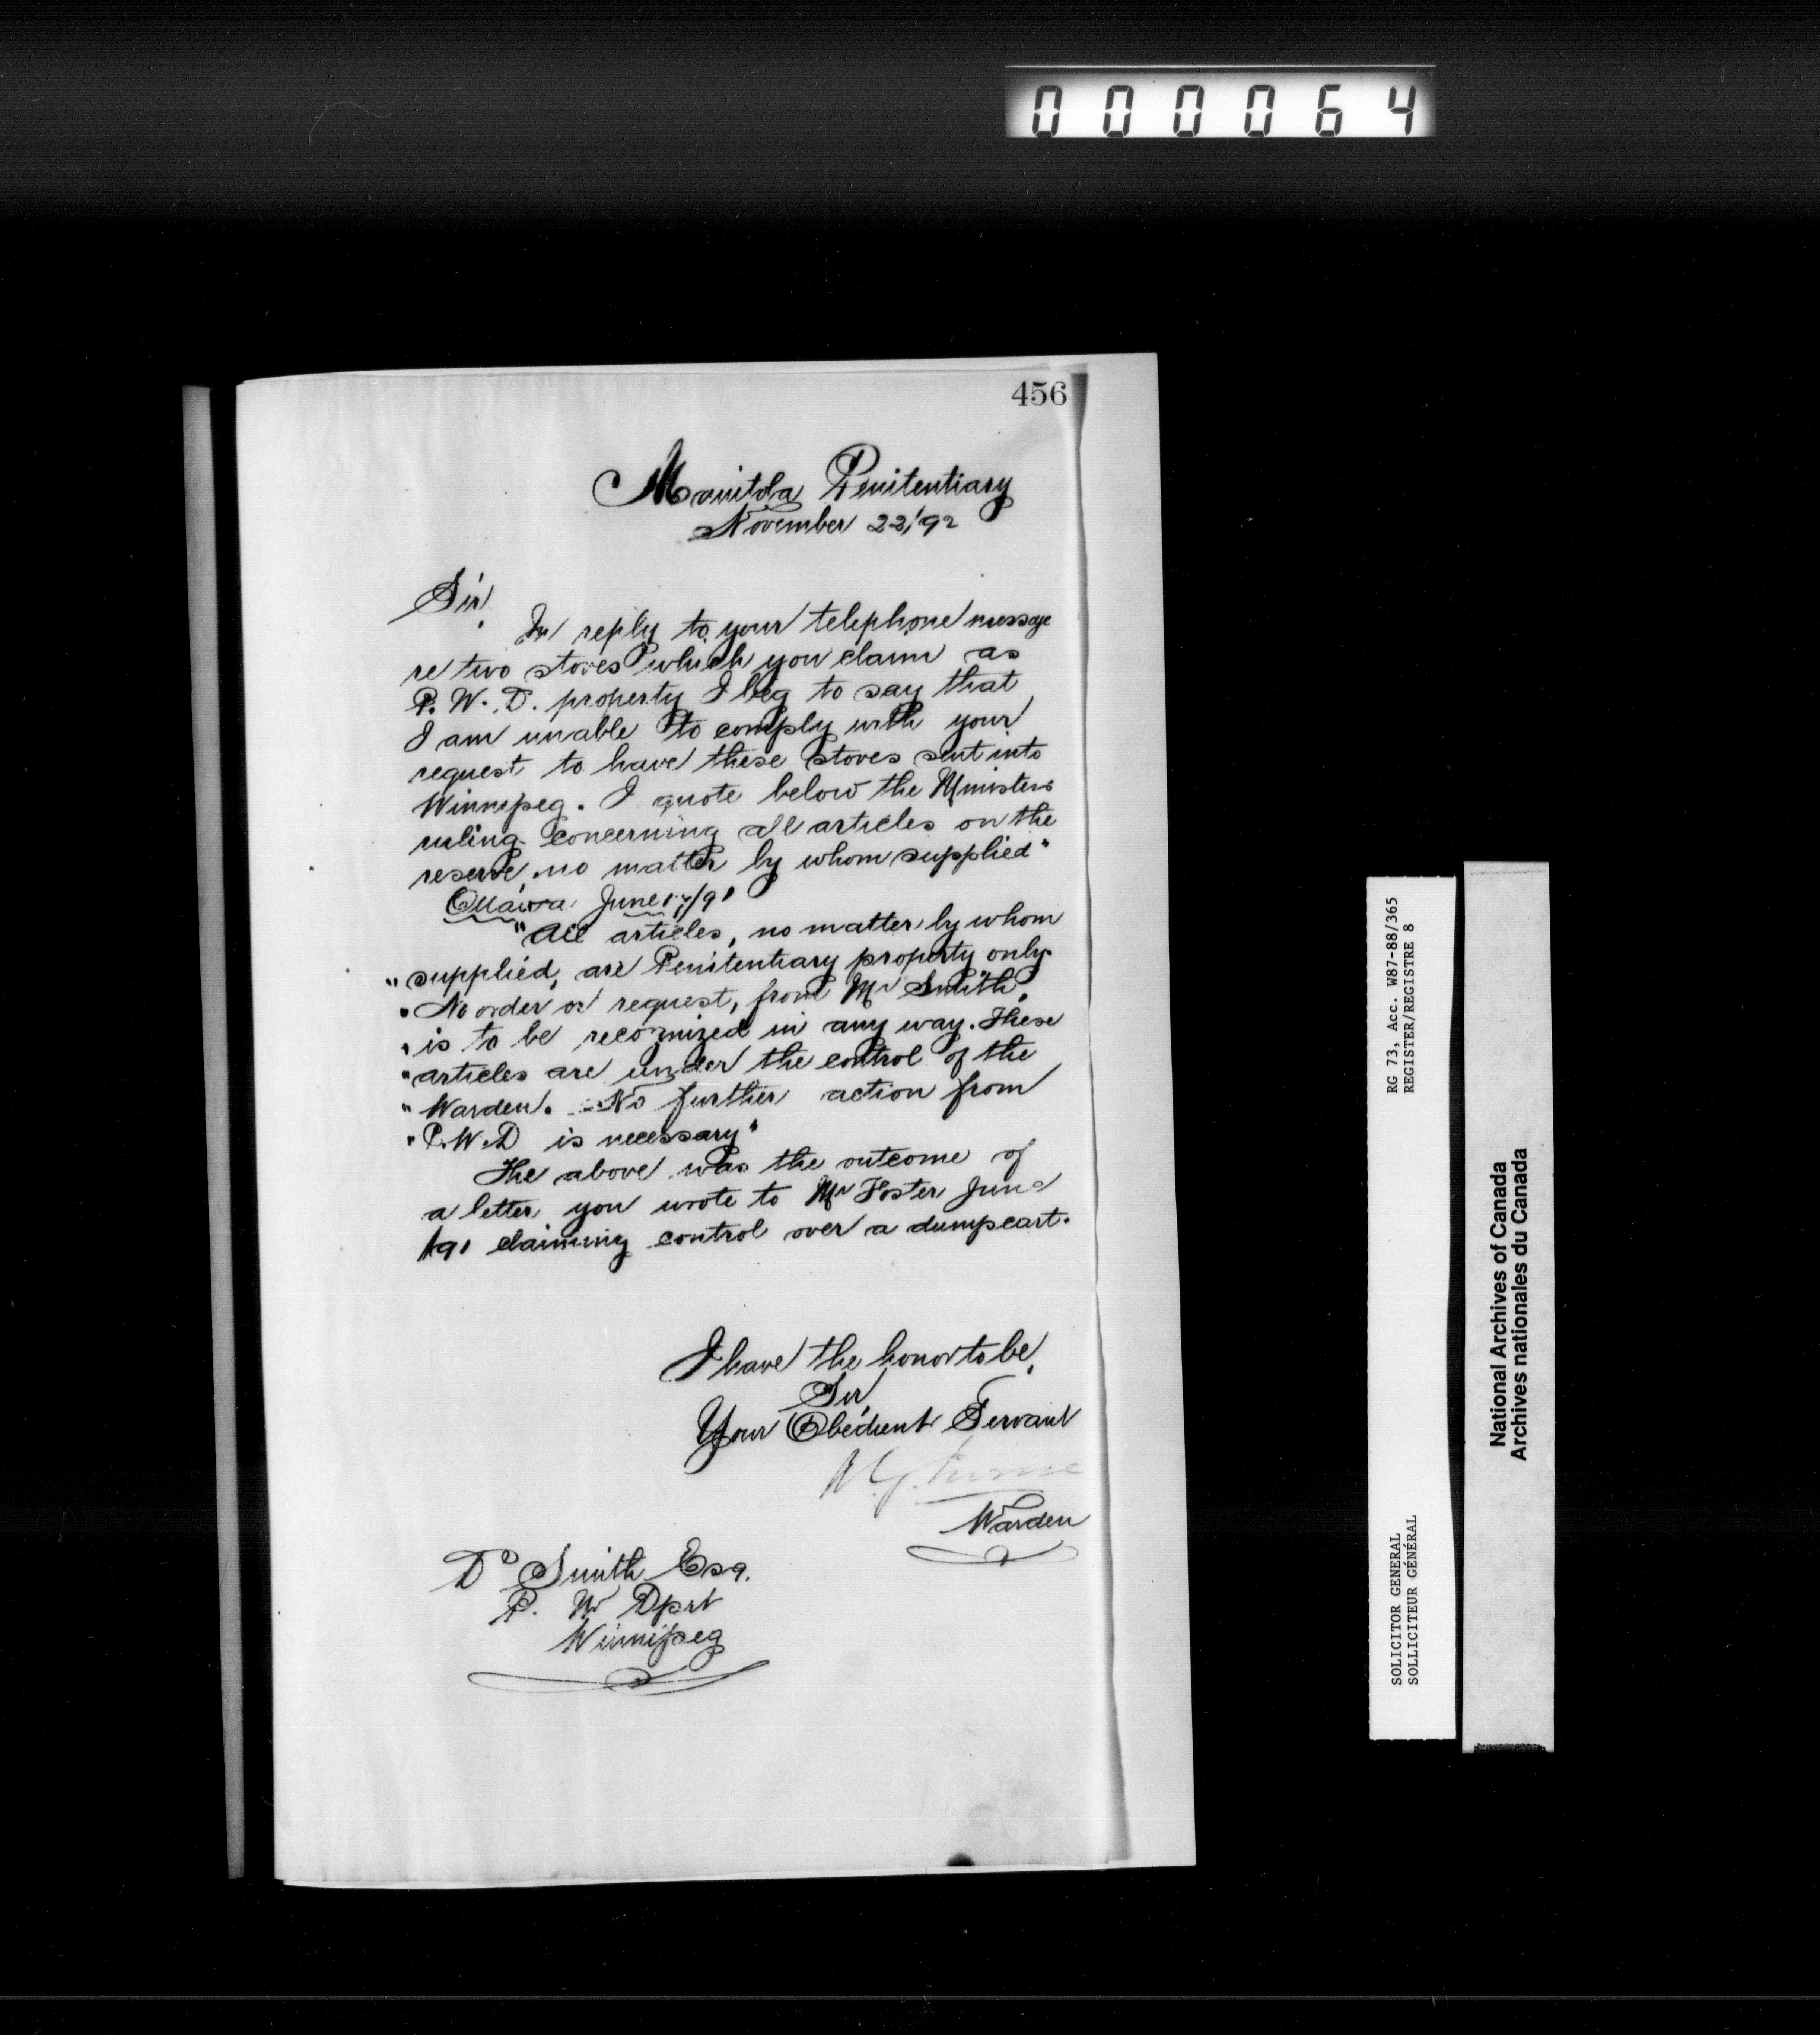 000064
456
Manitoba Penitentiary
November 22/92
Sir,
In reply to your telephone message
re two stoves which you claim as
P. W. D. property I beg to say that
I am unable to comply with your
request to have these stoves sent into
Winnipeg. I quote below the Ministers
ruling concerning all articles on the
reserve, no matter by whom supplied"
Ottawa June 17/91
"All articles, no matter by whom
"supplied, are Penitentiary property only.
"No order or request, from Mr Smith,
"is to be recognized in any way. These
"articles are under the control of the
"Warden. No further action from
"P.W.D is necessary"
The above was the outcome of
a letter you wrote to Mr Foster June
/91 claiming control over a dumpcart.
I have the honor to be,
Sir,
Your Obedient Servant
Warden
D Smith Esq.
P. W Dprt
Winnipeg
RG 73, Acc. W87-88/365
REGISTER/REGISTRE 8
SOLICITOR GENERAL
SOLLICITEUR GÉNÉRAL
National Archives of Canada
Archives nationales du Canada